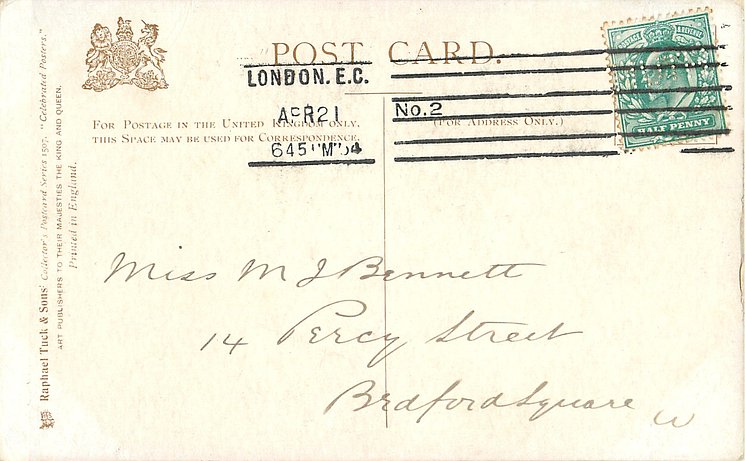 POST CARD.
LONDON. E.C.
APR 21
No. 2
FOR POSTAGE IN THE UNITED KINGDOM ONLY,
THIS SPACE MAY BE USED FOR CORRESPONDENCE.
(FOR ADDRESS ONLY.)
POSTAGE REVENUE
HALF PENNY
Miss M J Bennett
14 Percy Street
Bedford Square W
Raphael Tuck & Sons' Collector's Postcard Series 1507. "Celebrated Posters."
ART PUBLISHERS TO THEIR MAJESTIES THE KING AND QUEEN.
Printed in England.